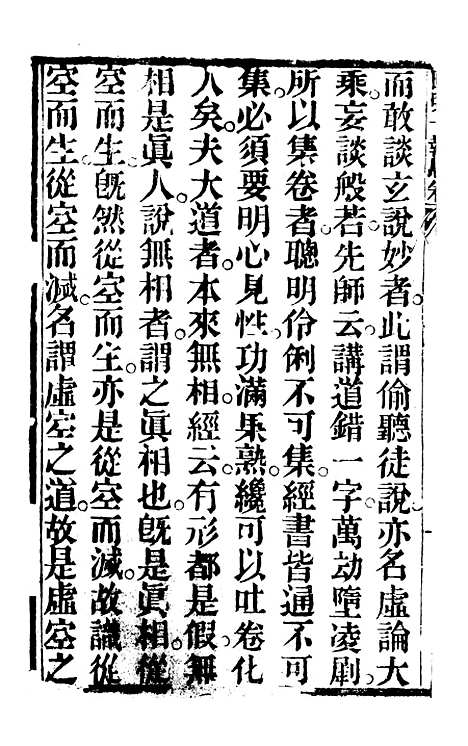 而敢談玄說妙者。此謂偷聽徒說。亦名虛論大
乘。妄談般若。先師云。講道錯一字。萬劫墮凌剮。
所以集卷者。聰明伶俐不可集。經書皆通不可
集。必須要明心見性。功滿果熟。纔可以吐卷化
人矣。夫大道者。本來無相。經云。有形都是假。無
相是眞人。說無相者。謂之眞相也。旣是眞相。從
空而生。旣然從空而生。亦是從空而滅。故識從
空而生。從空而滅。名謂虛空之道。故是虛空之